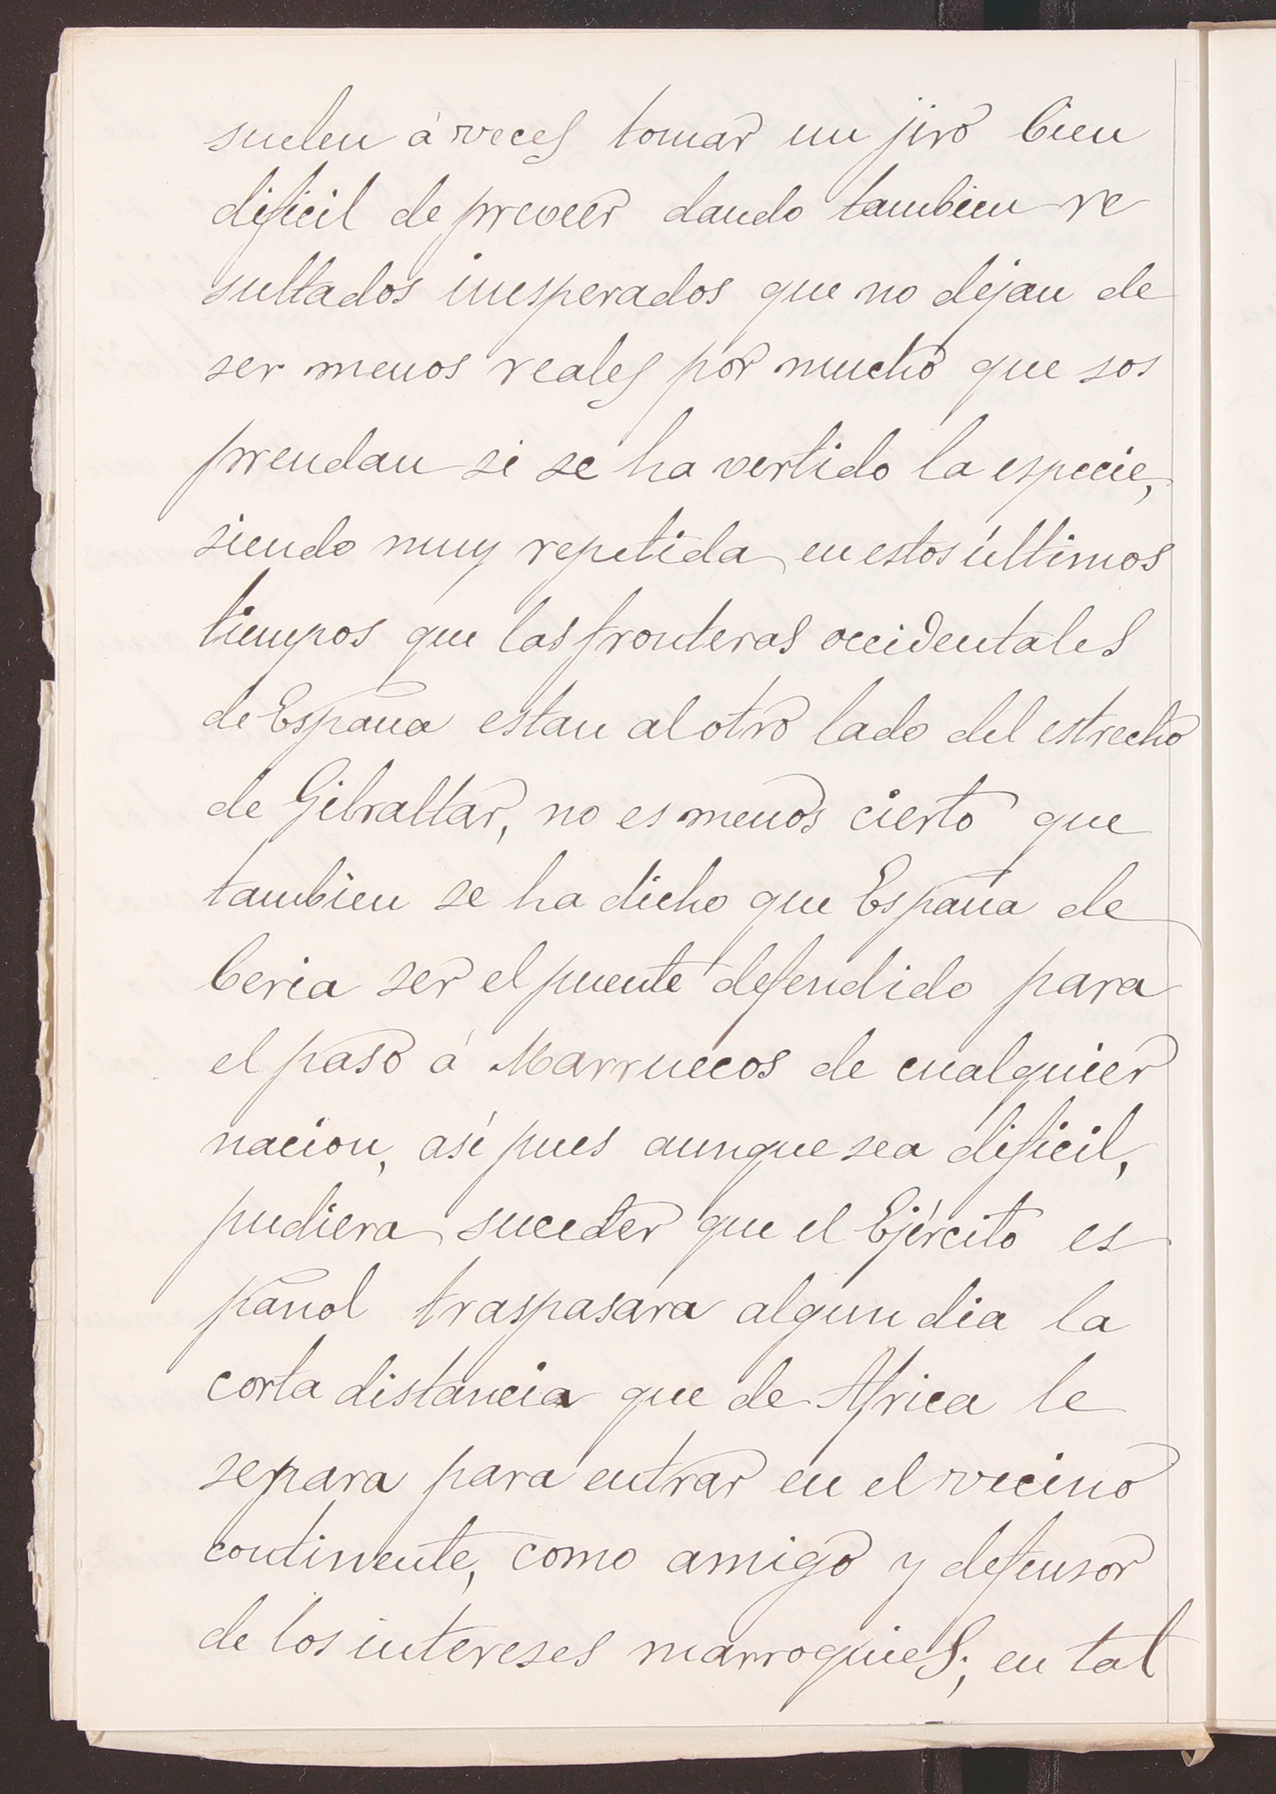 suelen á veces tomar un jiro bien
dificil de preveer dando tambien re
sultados inesperados que no dejan de
ser menos reales por mucho que sor
prendan si se ha vertido la especie,
siendo muy repetida en estos últimos
tiempos que las fronteras occidentales
de España estan al otro lado del estrecho
de Gibraltar, no es menos cierto que
tambien se ha dicho que España de
beria ser el puente defendido para
el paso á Marruecos de cualquier
nacion, así pues aunque sea dificil,
pudiera suceder que el Ejército es
pañol traspasara algun dia la
corta distancia que de Africa le
separa para entrar en el vecino
continente, como amigo y defensor
de los intereses marroquies; en tal